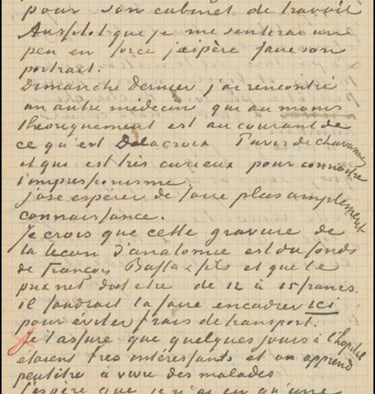 pour son cabinet de travail
Aussitot que je me sentirai un
peu en force j'espère faire son
portrait.
Dimanche dernier j'ai rencontré
un autre médecin qui au moins
théoriquement est au courant de
ce qu'est Delacroix Puvis de chavannes
et qui est très curieux pour connaître
l'impressionisme.
j'ose espérer de faire plus amplement
connaissance.
je crois que cette gravure de
la leçon d'anatomie est du fonds
de François Buffa & fils et que le
prix net doit être de 12 à 15 francs.
il faudrait la faire encadrer ici
pour éviter frais de transport.
Je t'assure que quelques jours à l'hopital
étaient très intéressants et on apprend
peutêtre à vivre des malades
j'espère que je n'ai eu qu'une